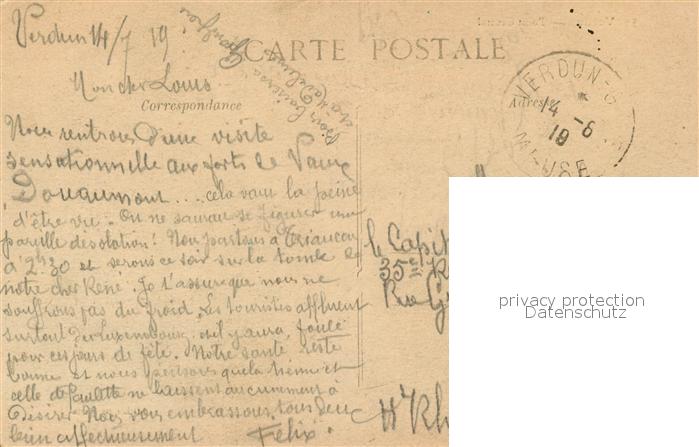 Verdun 14/7 19
CARTE POSTALE
Mon cher Louis
Correspondance
Adresse
VERDUN
14 -6
19
MEUSE
Nous rentrons d'une visite
sensationnelle aux forts de Vaux
Douaumont.... cela vaut la peine
d'être vu. On ne saurait se figurer une
pareille désolation! Nous partons à
à 2h30 et serons ce soir sur la tombe de
notre cher René. Je t'assure que nous ne
souffrons pas du froid. Les touristes affluent
surtout du Luxembourg, et il y aura foule
pour ces jours de fête. Notre santé reste
bonne et nous pensons que la tienne et
celle de Paulette ne laissent aucunement à
désirer. Nous vous embrassons tous deux
bien affectueusement
Felix
le Capit
35e R
Rue G
Ht Rh
privacy protection
Datenschutz